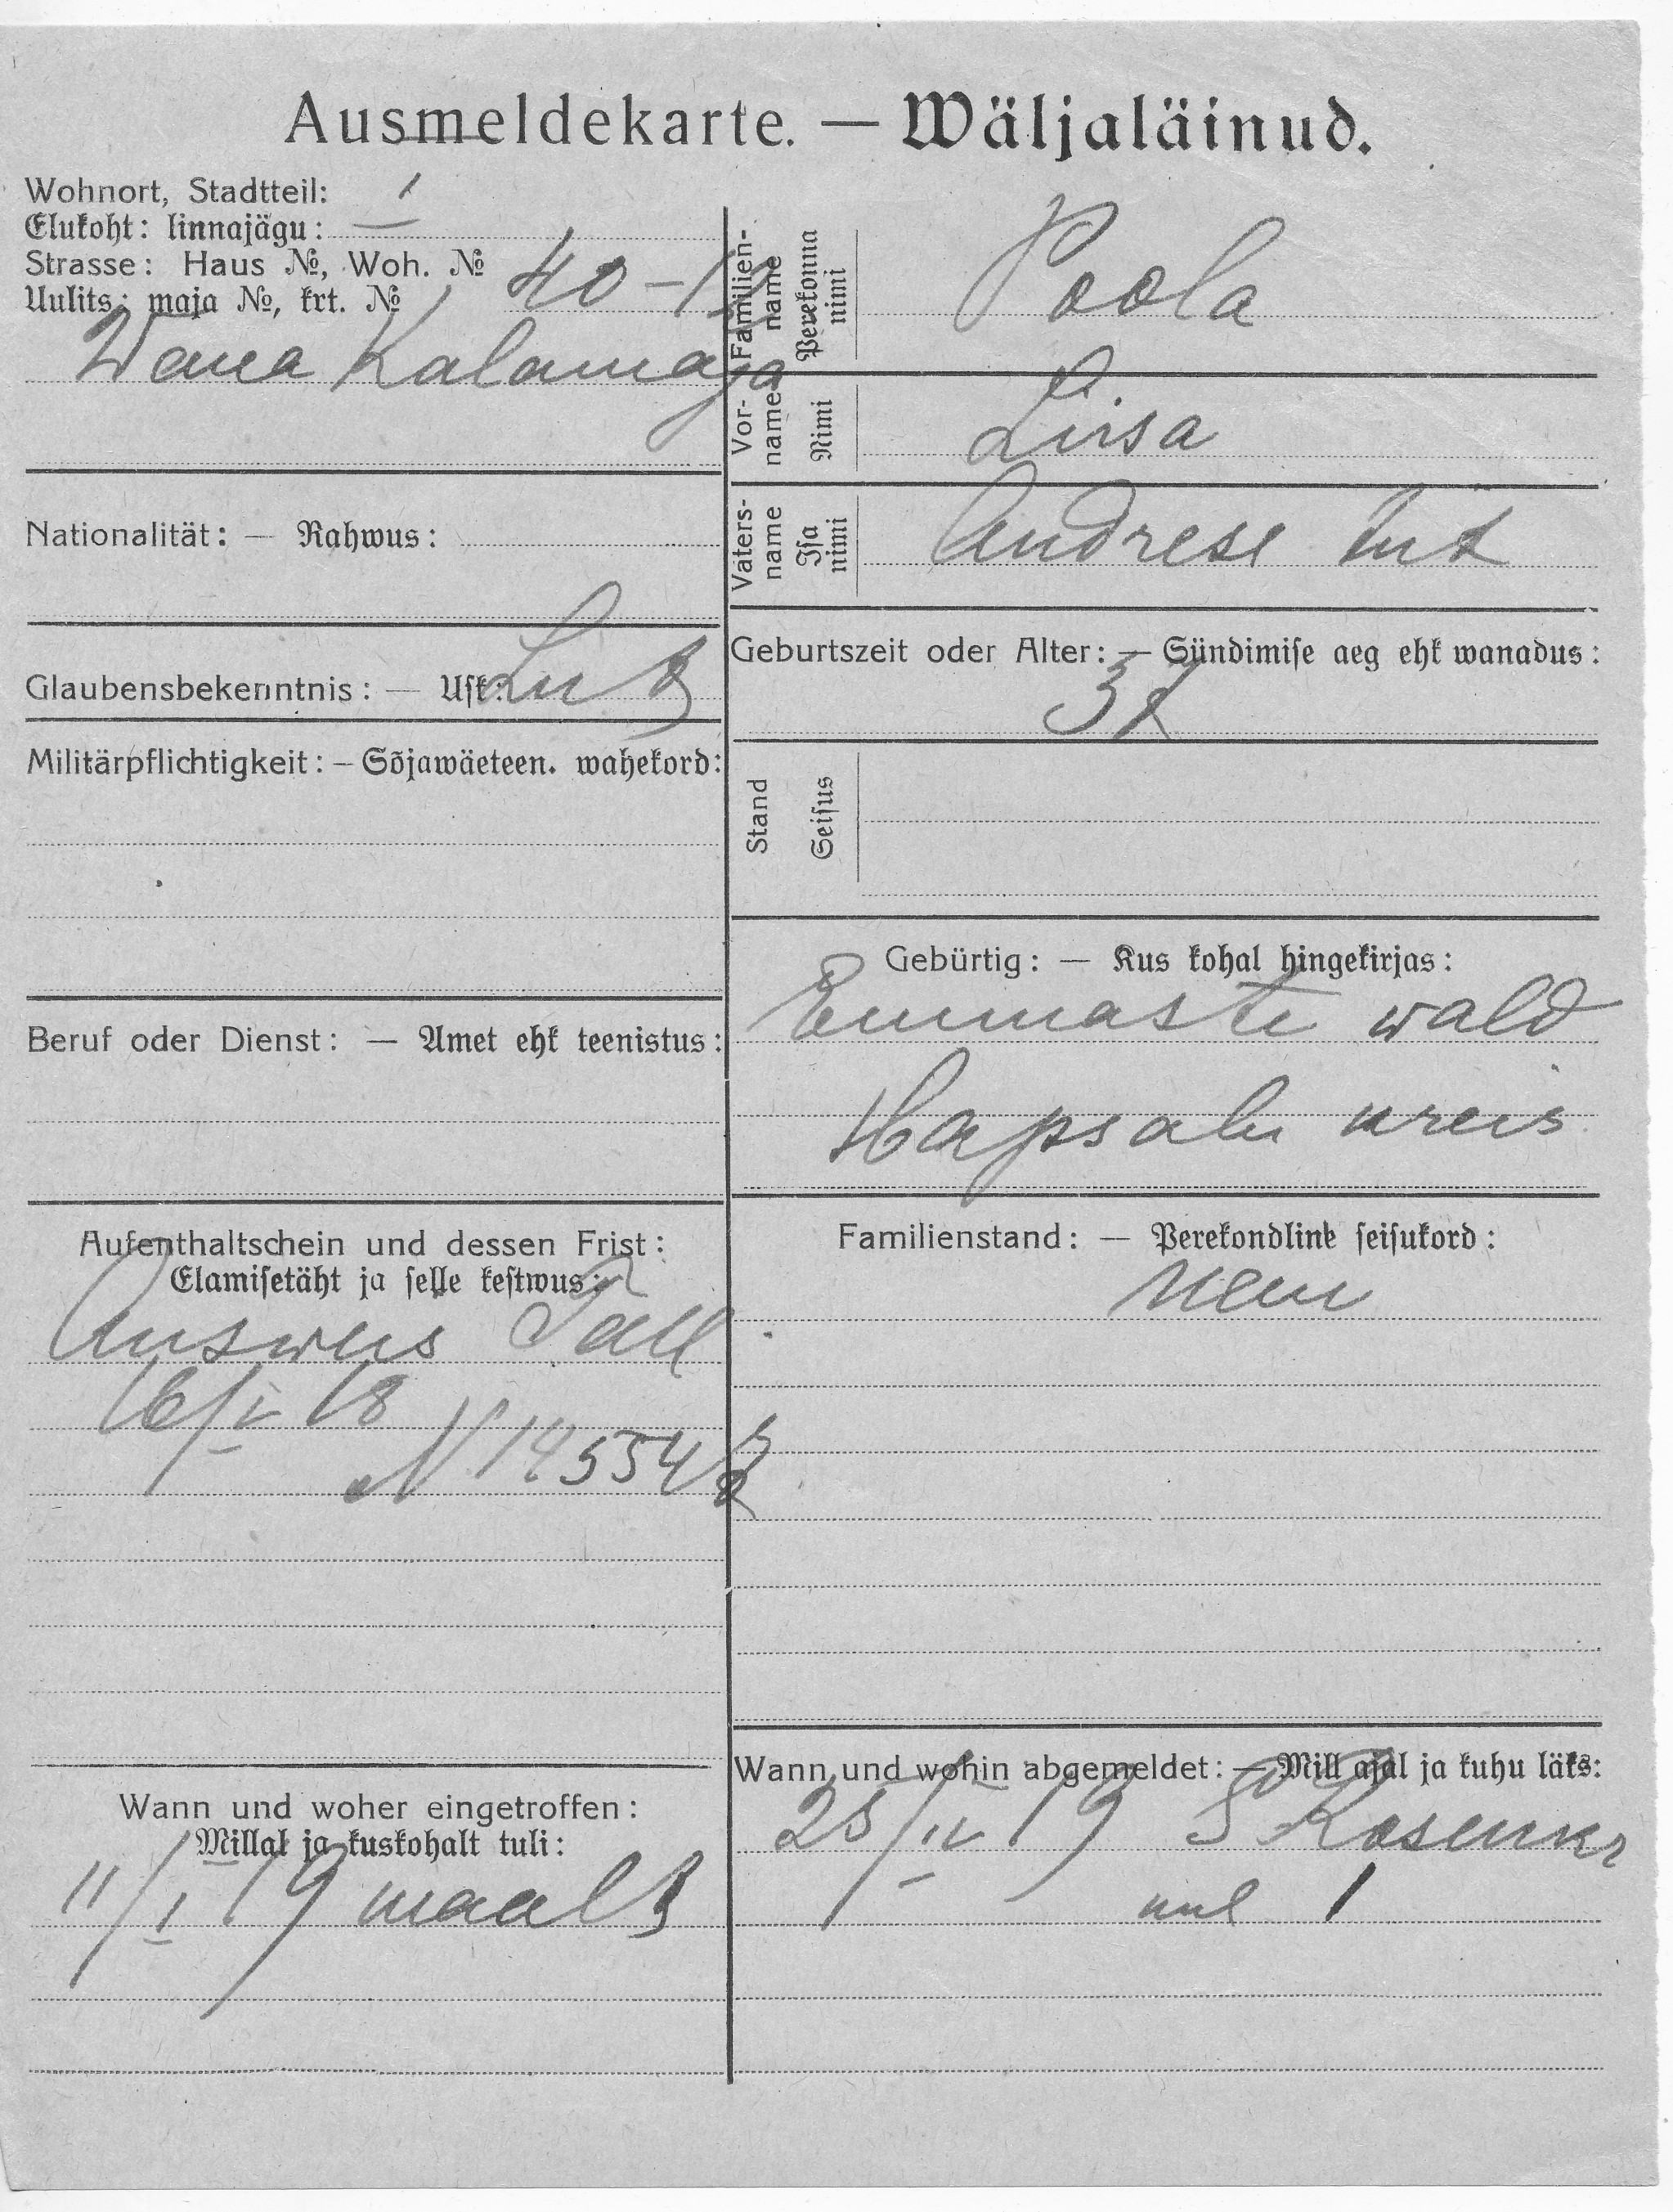 Ausmeldekarte. — Wäljaläinud.
Wohnort, Stadtteil:
Elukoht: linnajägu: I
Strasse: Haus №, Woh. №
Uulits: maja №, krt. № 40-12
Wana Kalamaja
Nationalität: — Rahwus:
Glaubensbekenntnis: — Usk: Lut
Militärpflichtigkeit: — Sõjawäeteen. wahekord:
Beruf oder Dienst: — Amet ehk teenistus:
Aufenthaltschein und dessen Frist:
Elamisetäht ja selle kestwus:
Ausweis Tall
16/V 18
N 14554
Wann und woher eingetroffen:
Millal ja kuskohalt tuli:
11/I 19 maalt
Familien-name Perekonna nimi Poola
Vor-name Nimi Liisa
Vaters-name Isa nimi Andrese tüt
Geburtszeit oder Alter: — Sündimise aeg ehk wanadus:
37
Stand Seisus
Gebürtig: — Kus kohal hingekirjas:
Emmaste wald
Hapsalu kreis
Familienstand: — Perekondline seisukord:
Wann und wohin abgemeldet: — Mill ajal ja kuhu läks:
25/IV 19
1